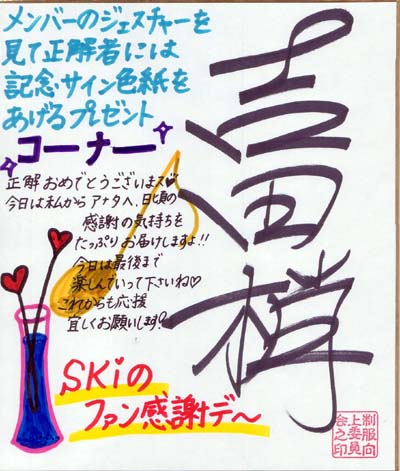 メンバーのジェスチャーを
見て正解者には
記念・サイン色紙を
あげるプレゼント
コーナー
正解おめでとうございます♡
今日は私からアナタへ、日頃の
感謝の気持ちを
たっぷりお届けしますよ!!
今日は最後まで
楽しんでいって下さいね♡
これからも応援
宜しくお願いします!
SKiの
ファン感謝デ〜
吉田梢
制服向
上委員
会之印